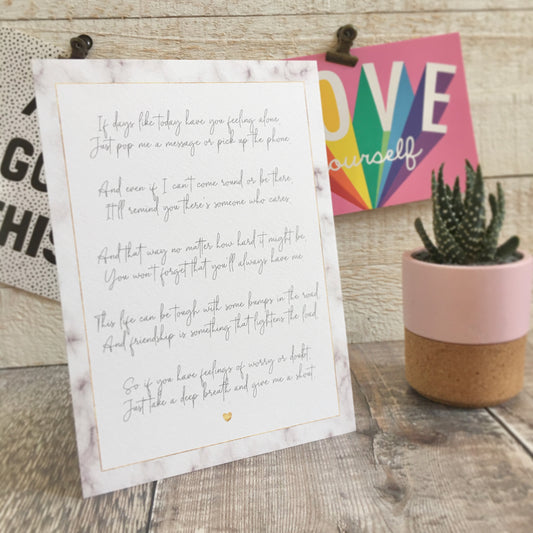 If days like today have you feeling alone
Just pop me a message or pick up the phone
And even if I can't come round or be there
It'll remind you there's someone who cares.
And that way no matter how hard it might be,
You won't forget that you'll always have me.
This life can be tough with some bumps in the road
And friendship is something that lightens the load.
So if you have feelings of worry or doubt
Just take a deep breath and give me a shout.
GO
THIS
OVE
yourself